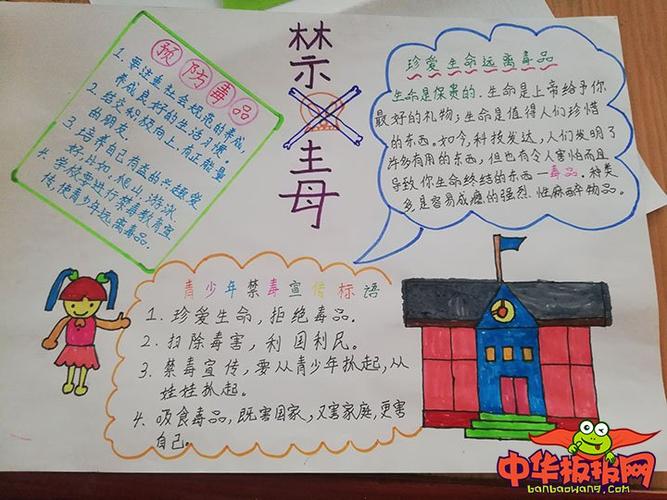 禁毒
预防毒品
1. 要注重社会规范的养成,
养成良好的生活习惯。
2. 结交积极向上、有正能量
的朋友。
3. 培养自己有益的兴趣爱
好,比如,爬山,游泳
4. 学校要进行禁毒教育宣
传,使青少年远离毒品。
珍爱生命远离毒品
生命是保贵的、生命是上帝给予你
最好的礼物;生命是值得人们珍惜
的东西。如今,科技发达,人们发明了
许多有用的东西,但也有令人害怕而且
导致你生命终结的东西—毒品,种类
多是容易成瘾的强烈、性麻醉物品。
青少年禁毒宣传标语
1. 珍爱生命,拒绝毒品。
2. 扫除毒害,利国利民。
3. 禁毒宣传,要从青少年抓起,从
娃娃抓起。
4. 吸食毒品,既害国家,又害家庭,更害
自己。
中华板报网
banbaowang.com